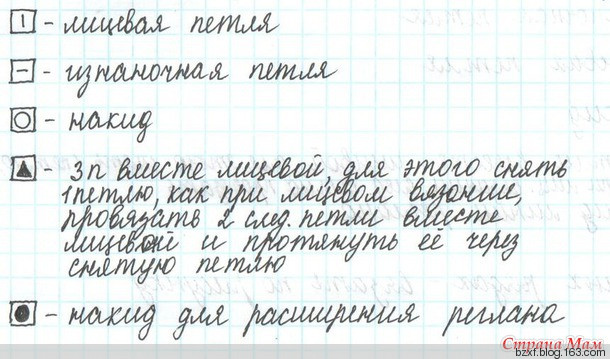 - лицевая петля
- изнаночная петля
- накид
- 3п вместе лицевой, для этого снять
1 петлю, как при лицевом вязание,
провязать 2 след. петли вместе
лицевой и протянуть её через
снятую петлю
- накид для расширения реглана
Страна Мам
bzxf.blog.163.com